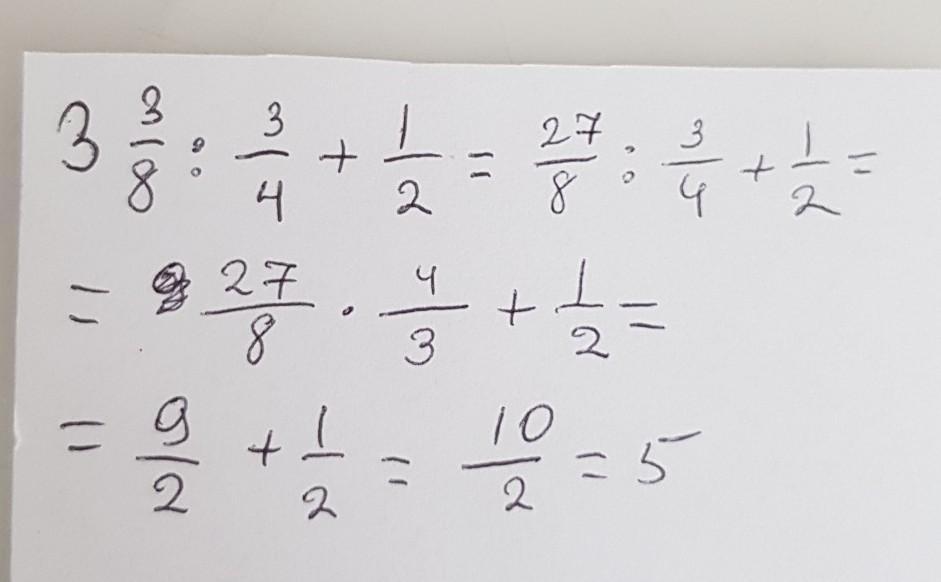 3 3/8 : 3/4 + 1/2 = 27/8 : 3/4 + 1/2 =
= 27/8 · 4/3 + 1/2 =
= 9/2 + 1/2 = 10/2 = 5